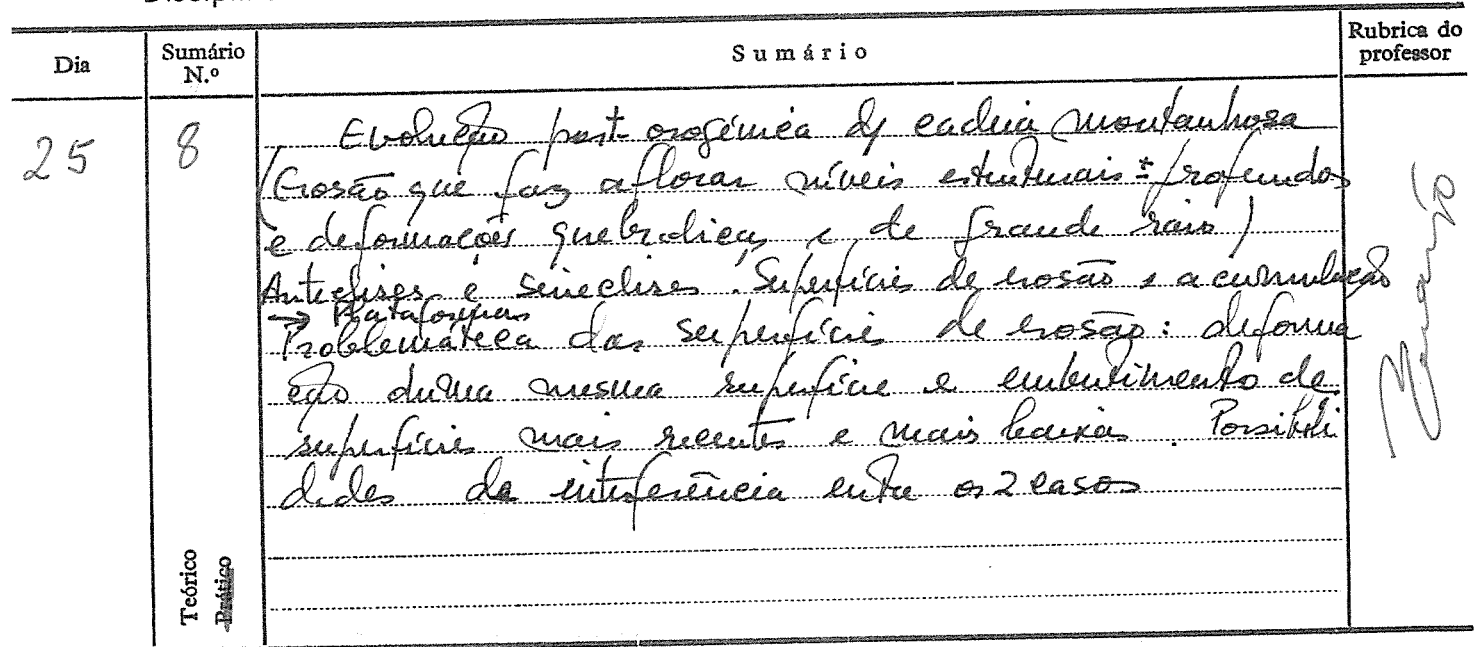 Dia
Sumário
N.º
Sumário
Rubrica do
professor
25
8
Evolução post-orogénica da cadeia montanhosa
(Erosão que faz aflorar níveis estruturais ± profundos
e deformações quebradiças e de grande raio)
Anteclises e sineclises. Superfícies de erosão e acumulação
→ Plataformas
Problemática das superfícies de erosão: deforma
ção duma mesma superfície e embutimento de
superfícies mais recentes e mais baixas. Possibili
dades da interferência entre os 2 casos
Teórico
Prático